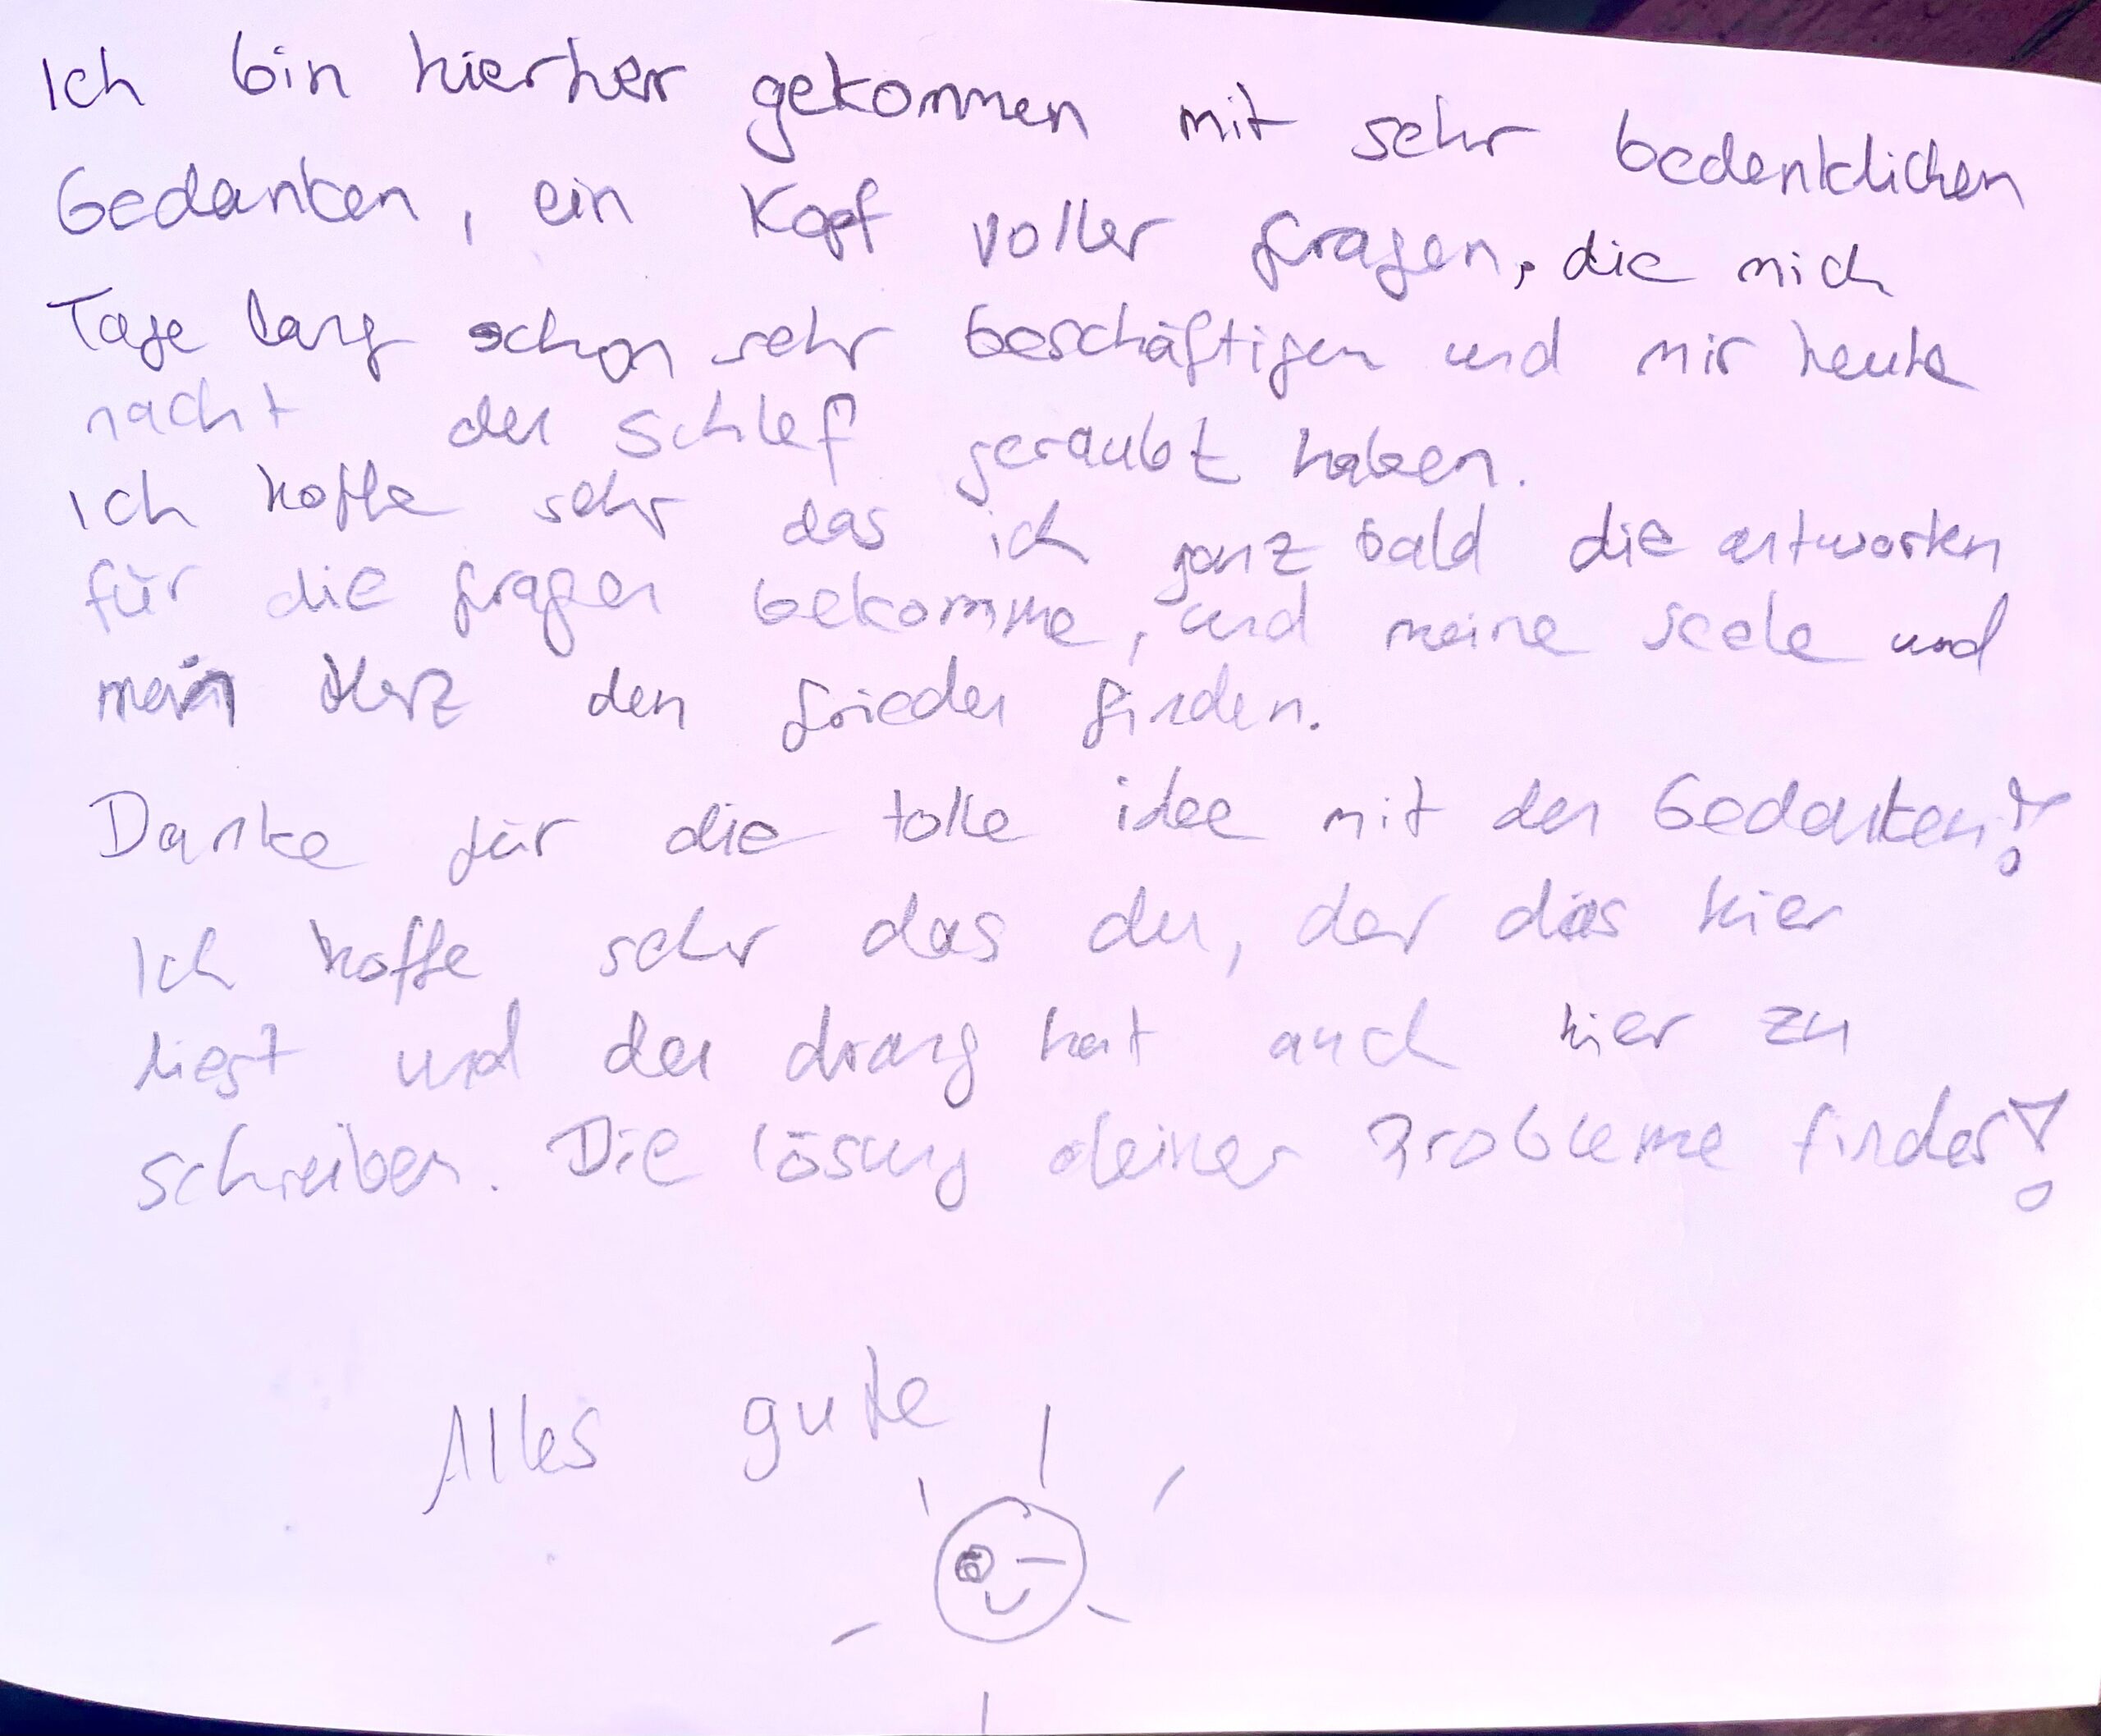 Ich bin hierher gekommen mit sehr bedenklichen
Gedanken, ein Kopf voller fragen, die mich
Tage lang schon sehr beschäftigen und mir heute
nacht den Schlef geraubt haben.
Ich hoffe sehr das ich ganz bald die antworten
für die fragen bekomme, und meine seele und
mein Herz den frieden finden.
Danke für die tolle idee mit den Gedanken!
Ich hoffe sehr das du, der das hier
liest und den drang hat auch hier zu
schreiben. Die lösung deiner Probleme findest!
Alles gute